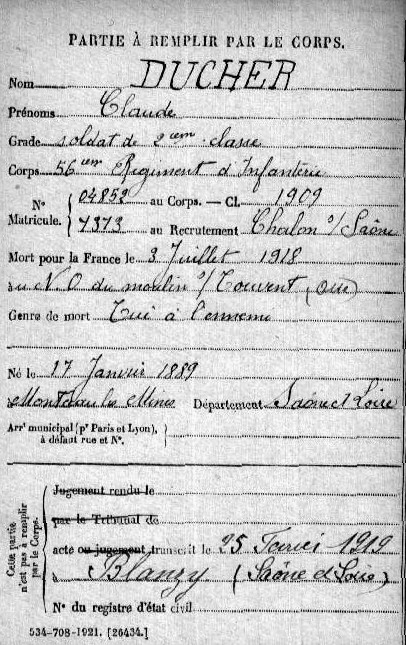 PARTIE À REMPLIR PAR LE CORPS.
Nom DUCHER
Prénoms Claude
Grade soldat de 2eme classe
Corps 56eme Régiment d'Infanterie
N° Matricule. { 04852 au Corps. — Cl. 1909
7373 au Recrutement Chalon s/ Saône
Mort pour la France le 3 Juillet 1918
au N.O du moulin s/ Touvent (Oise)
Genre de mort Tué à l'ennemi
Né le 17 Janvier 1889
Montceau les Mines Département Saône et Loire
Arrt municipal (pr Paris et Lyon),
à défaut rue et N°.
Cette partie n'est pas à remplir par le Corps.
Jugement rendu le
par le Tribunal de
acte ou jugement transcrit le 25 Février 1919
à Blanzy (Saône et Loire)
N° du registre d'état civil
534-708-1921. [26434.]